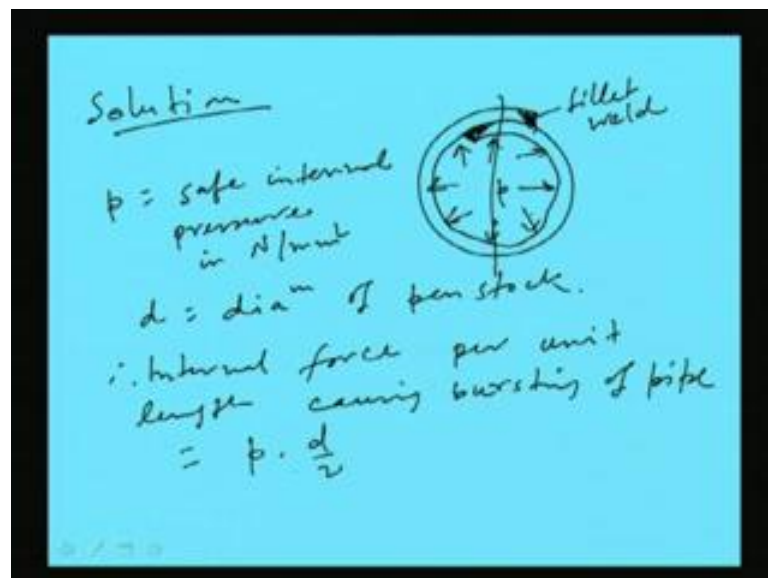 Solution
fillet
weld
p = safe internal
pressures
in N/mm²
p
d = diaᵐ of penstock.
∴ Internal force per unit
length causing bursting of pipe
= p . d/2